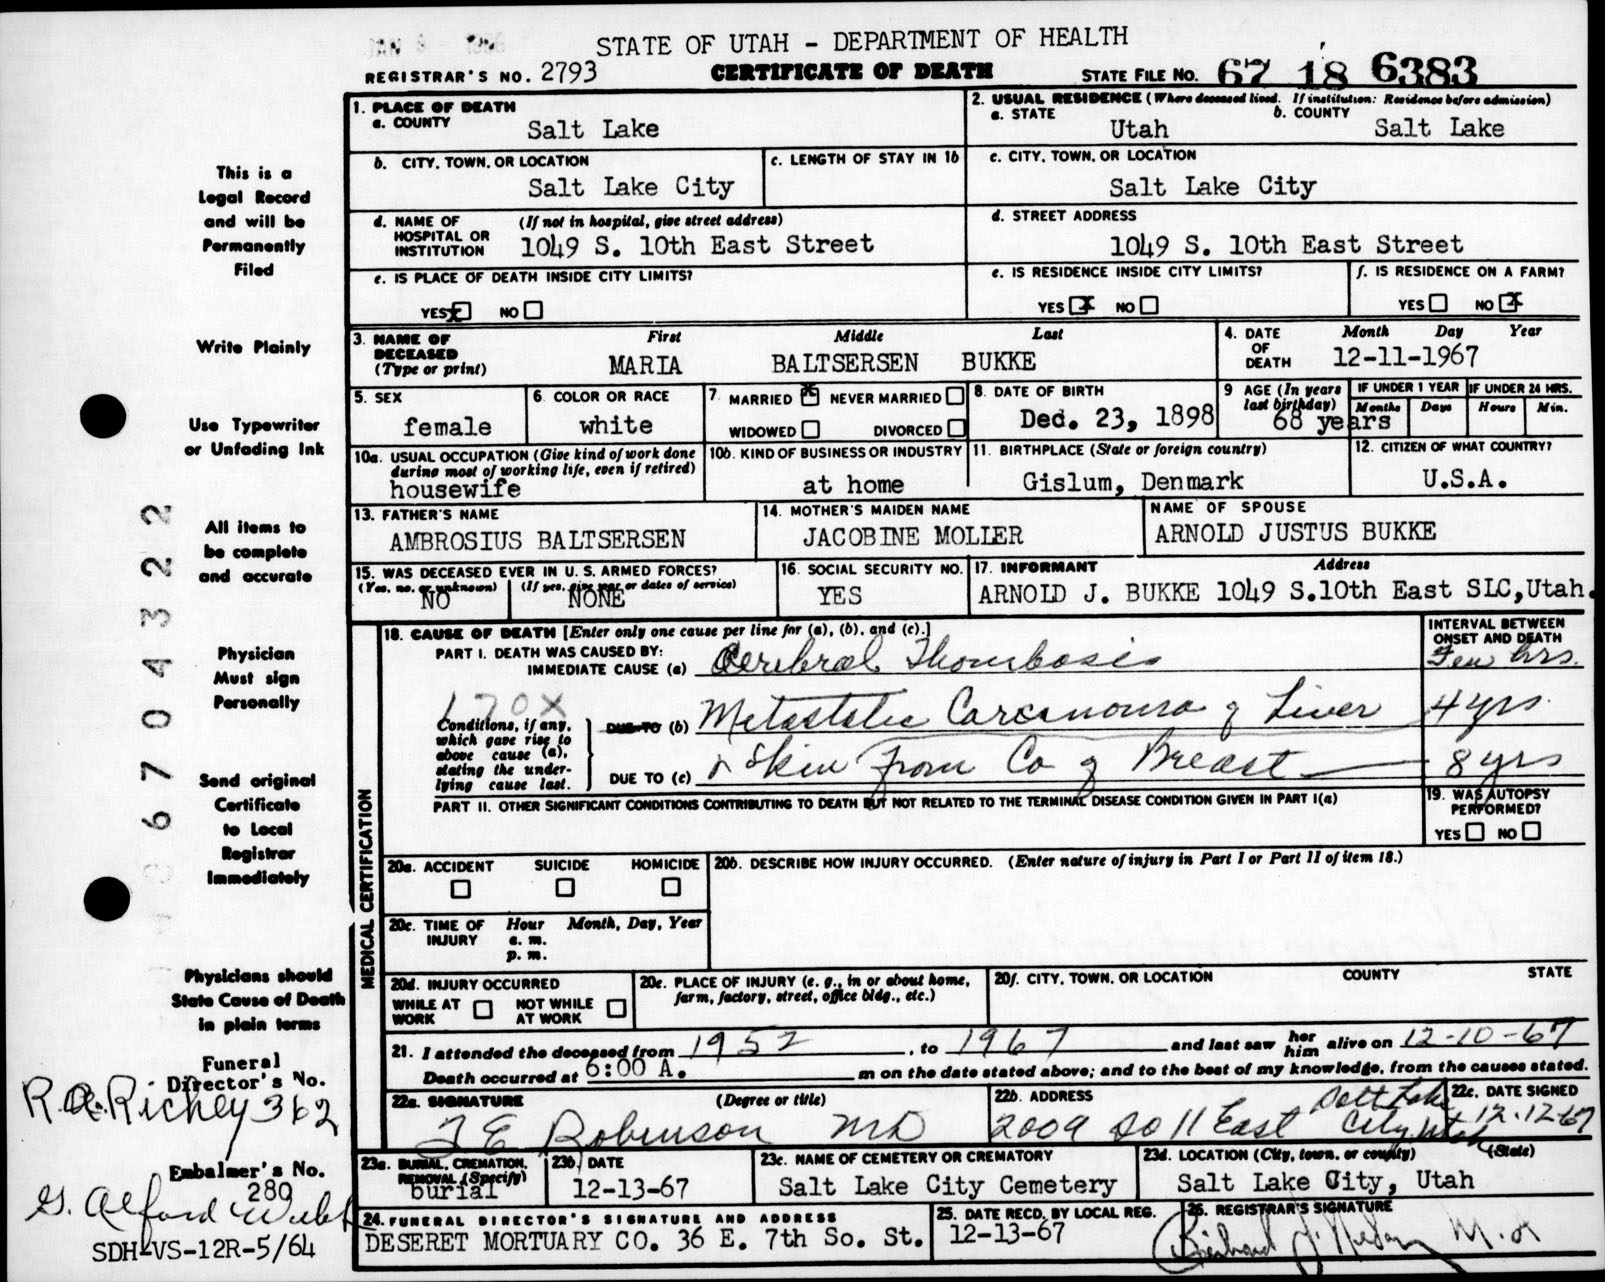 STATE OF UTAH - DEPARTMENT OF HEALTH
REGISTRAR'S NO. 2793 CERTIFICATE OF DEATH STATE FILE NO. 67 18 6383
This is a
Legal Record
and will be
Permanently
Filed
Write Plainly
Use Typewriter
or Unfading Ink
All items to
be complete
and accurate
Physician
Must sign
Personally
Send original
Certificate
to Local
Registrar
Immediately
Physicians should
State Cause of Death
in plain terms
Funeral
Director's No.
R. A. Richey 362
Embalmer's No.
280
G. Alford
SDH-VS-12R-5/64
6704322
1. PLACE OF DEATH
a. COUNTY Salt Lake
2. USUAL RESIDENCE (Where deceased lived. If institution: Residence before admission)
a. STATE Utah b. COUNTY Salt Lake
b. CITY, TOWN, OR LOCATION Salt Lake City
c. LENGTH OF STAY IN 1b
c. CITY, TOWN, OR LOCATION
Salt Lake City
d. NAME OF HOSPITAL OR INSTITUTION (If not in hospital, give street address)
1049 S. 10th East Street
d. STREET ADDRESS
1049 S. 10th East Street
e. IS PLACE OF DEATH INSIDE CITY LIMITS?
YES X NO
e. IS RESIDENCE INSIDE CITY LIMITS?
YES X NO
f. IS RESIDENCE ON A FARM?
YES NO X
3. NAME OF DECEASED (Type or print) First Middle Last
MARIA BALTSERSEN BUKKE
4. DATE OF DEATH Month Day Year
12-11-1967
5. SEX
female
6. COLOR OR RACE
white
7. MARRIED X NEVER MARRIED
WIDOWED DIVORCED
8. DATE OF BIRTH
Dec. 23, 1898
9 AGE (In years last birthday)
68 years
IF UNDER 1 YEAR IF UNDER 24 HRS.
Months Days Hours Min.
10a. USUAL OCCUPATION (Give kind of work done during most of working life, even if retired)
housewife
10b. KIND OF BUSINESS OR INDUSTRY
at home
11. BIRTHPLACE (State or foreign country)
Gislum, Denmark
12. CITIZEN OF WHAT COUNTRY?
U.S.A.
13. FATHER'S NAME
AMBROSIUS BALTSERSEN
14. MOTHER'S MAIDEN NAME
JACOBINE MOLLER
NAME OF SPOUSE
ARNOLD JUSTUS BUKKE
15. WAS DECEASED EVER IN U. S. ARMED FORCES?
(Yes, no, or unknown) (If yes, give year or dates of service)
NO NONE
16. SOCIAL SECURITY NO.
YES
17. INFORMANT Address
ARNOLD J. BUKKE 1049 S.10th East SLC,Utah.
MEDICAL CERTIFICATION
18. CAUSE OF DEATH [Enter only one cause per line for (a), (b), and (c).]
INTERVAL BETWEEN ONSET AND DEATH
PART I. DEATH WAS CAUSED BY:
IMMEDIATE CAUSE (a) Cerebral Thombosis Few hrs.
170X
Conditions, if any, which gave rise to above cause (a), stating the underlying cause last.
DUE TO (b) Metastatic Carcinoma of Liver 4 yrs.
DUE TO (c) & Skin from Ca of Breast 8 yrs
PART II. OTHER SIGNIFICANT CONDITIONS CONTRIBUTING TO DEATH BUT NOT RELATED TO THE TERMINAL DISEASE CONDITION GIVEN IN PART I(a)
19. WAS AUTOPSY PERFORMED?
YES NO
20a. ACCIDENT SUICIDE HOMICIDE
20b. DESCRIBE HOW INJURY OCCURRED. (Enter nature of injury in Part I or Part II of item 18.)
20c. TIME OF INJURY Hour Month, Day, Year
a. m.
p. m.
20d. INJURY OCCURRED
WHILE AT WORK NOT WHILE AT WORK
20e. PLACE OF INJURY (e. g., in or about home, farm, factory, street, office bldg., etc.)
20f. CITY, TOWN, OR LOCATION COUNTY STATE
21. I attended the deceased from 1952, to 1967 and last saw her him alive on 12-10-67
Death occurred at 6:00 A. m on the date stated above; and to the best of my knowledge, from the causes stated.
22a. SIGNATURE (Degree or title)
T E Robinson MD
22b. ADDRESS
2009 So 11 East Salt Lake City, Utah
22c. DATE SIGNED
12-12-67
23a. BURIAL, CREMATION, REMOVAL (Specify)
burial
23b. DATE
12-13-67
23c. NAME OF CEMETERY OR CREMATORY
Salt Lake City Cemetery
23d. LOCATION (City, town, or county) (State)
Salt Lake City, Utah
24. FUNERAL DIRECTOR'S SIGNATURE AND ADDRESS
DESERET MORTUARY CO. 36 E. 7th So. St.
25. DATE RECD. BY LOCAL REG.
12-13-67
26. REGISTRAR'S SIGNATURE
M.D.